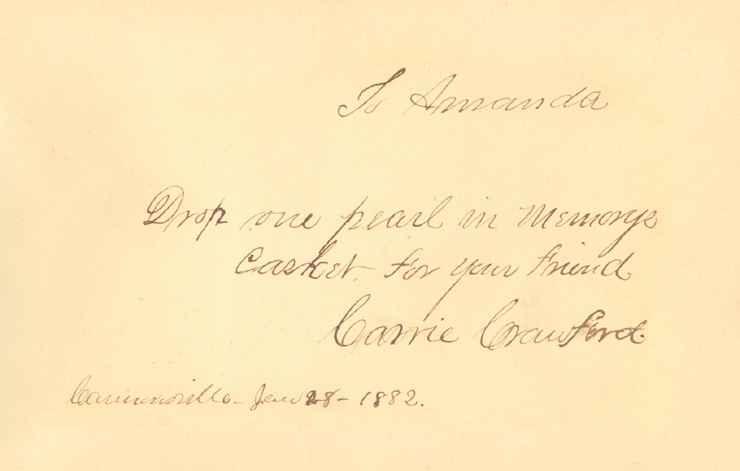 To Amanda
Drop one pearl in Memorys
Casket. For your Friend
Carrie Crawford.
Jan 28 - 1882.